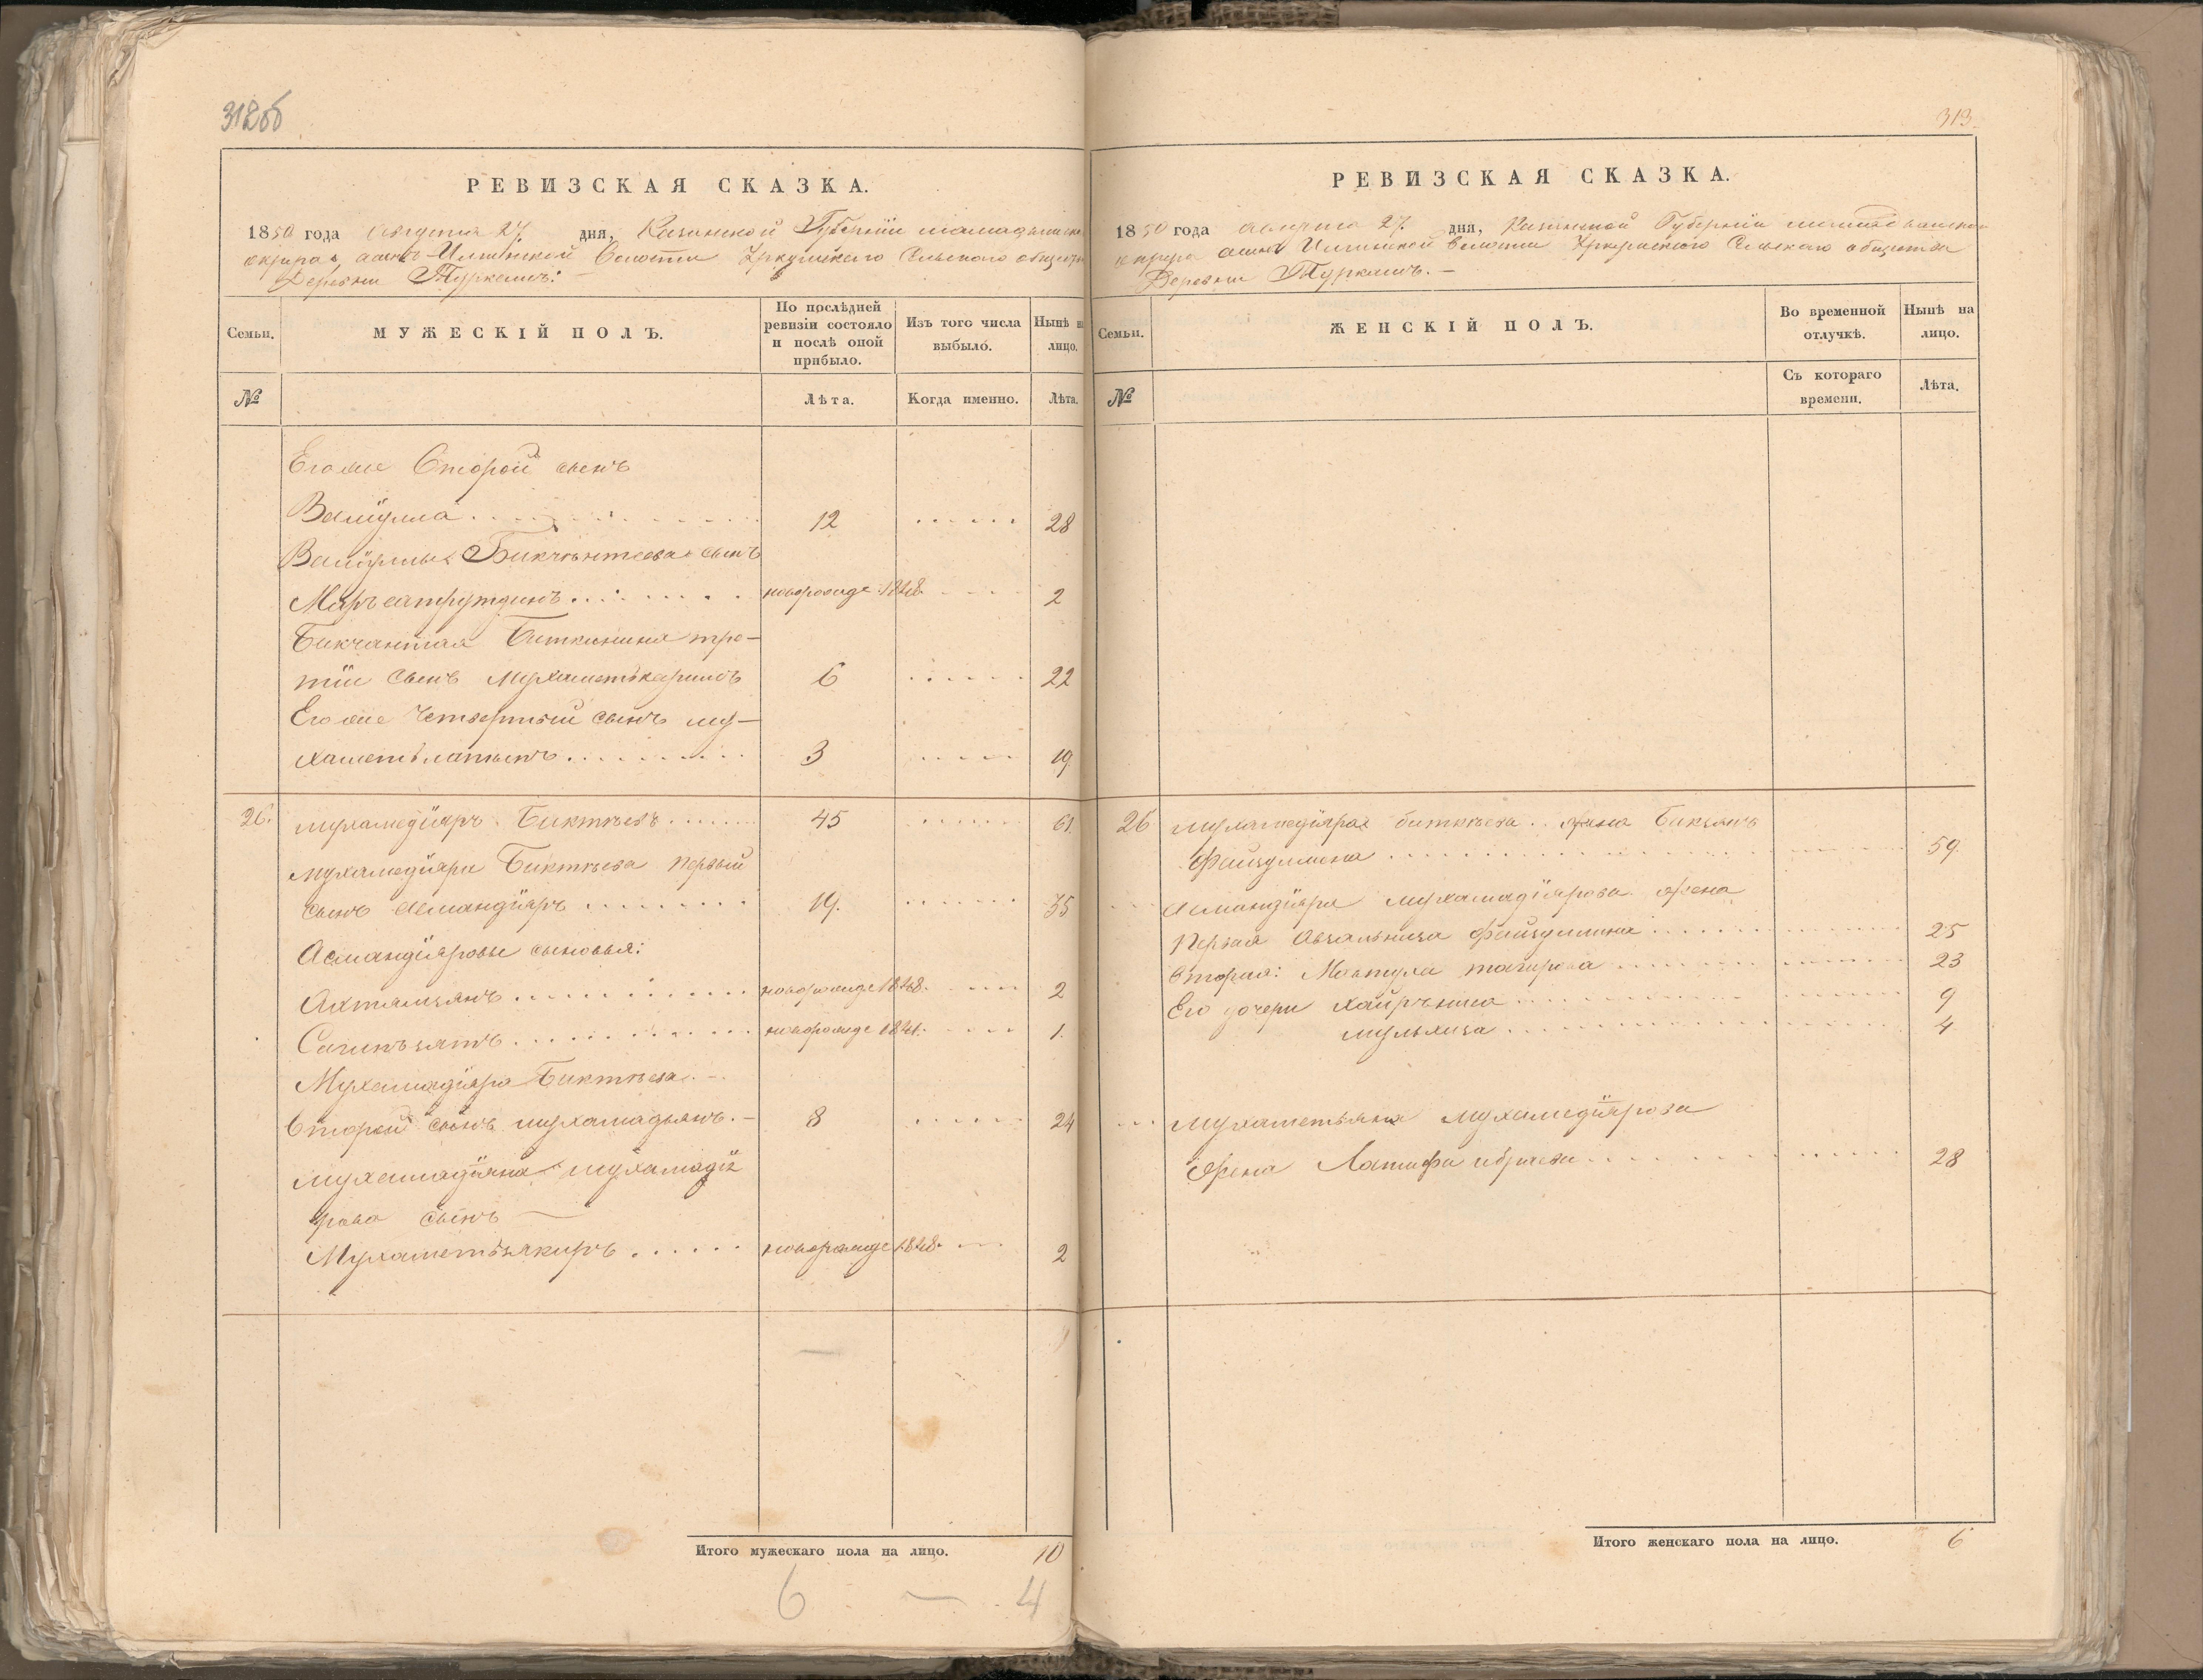 312об
РЕВИЗСКАЯ СКАЗКА.
1850 года Августа 27 дня, Казанской Губернии
округа, Волости Сельского
Деревни Туркешъ:
Семьи.
МУЖЕСКІЙ ПОЛЪ.
По послѣдней ревизіи состояло и послѣ оной прибыло.
Изъ того числа выбыло.
Нынѣ на лицо.
№
Лѣта.
Когда именно.
Лѣта.
Егоже Второй сынъ
Валіулла . . . 12 . . . 28
Валіуллы Бикчантеева сынъ
новорожде 1848 . . . 2
Бикчантая Биткинина тре-
тій сынъ Мухаметькаримъ 6 . . . 22
Егоже Четвертый сынъ му-
хаметьлатыпъ . . . 3 . . . 19
26. мухамедіяръ Биктѣевъ . . . 45 . . . 61
мухамедіяра Биктѣева первый
сынъ Асмандіяръ . . . 19. . . . 35
Асмандіяровы сыновья:
Ахтямзянъ . . . новорожде 1848. . . . 2
новорожде . . . 1.
Мухамадіяра Биктѣева. -
Второй сынъ мухамадьянъ. - 8 . . . 24
мухамадіяна мухамадія
рова сынъ —
Мухаметьзякиръ . . . новорожде 1848. . . . 2
Итого мужескаго пола на лицо. 10
6 — 4
313.
РЕВИЗСКАЯ СКАЗКА.
1850 года августа 27. дня, Казанской Губерніи
округа волости Сельскаго общества
Деревни Туркешъ. —
Семьи.
ЖЕНСКІЙ ПОЛЪ.
Во временной отлучкѣ.
Нынѣ на лицо.
№
Съ котораго времени.
Лѣта.
26 мухамедіяра биктѣева . . жена
Файзуллина . . . 59.
Асмандіяра мухамадіярова жена
Первая Файзуллина . . . 25
Вторая: Мавтула тагирова . . . 23
Его дочери хайрѣниса . . . 9
. . . 4
мухаметьяна мухамедіярова
Жена Латифа . . . 28
Итого женскаго пола на лицо. 6